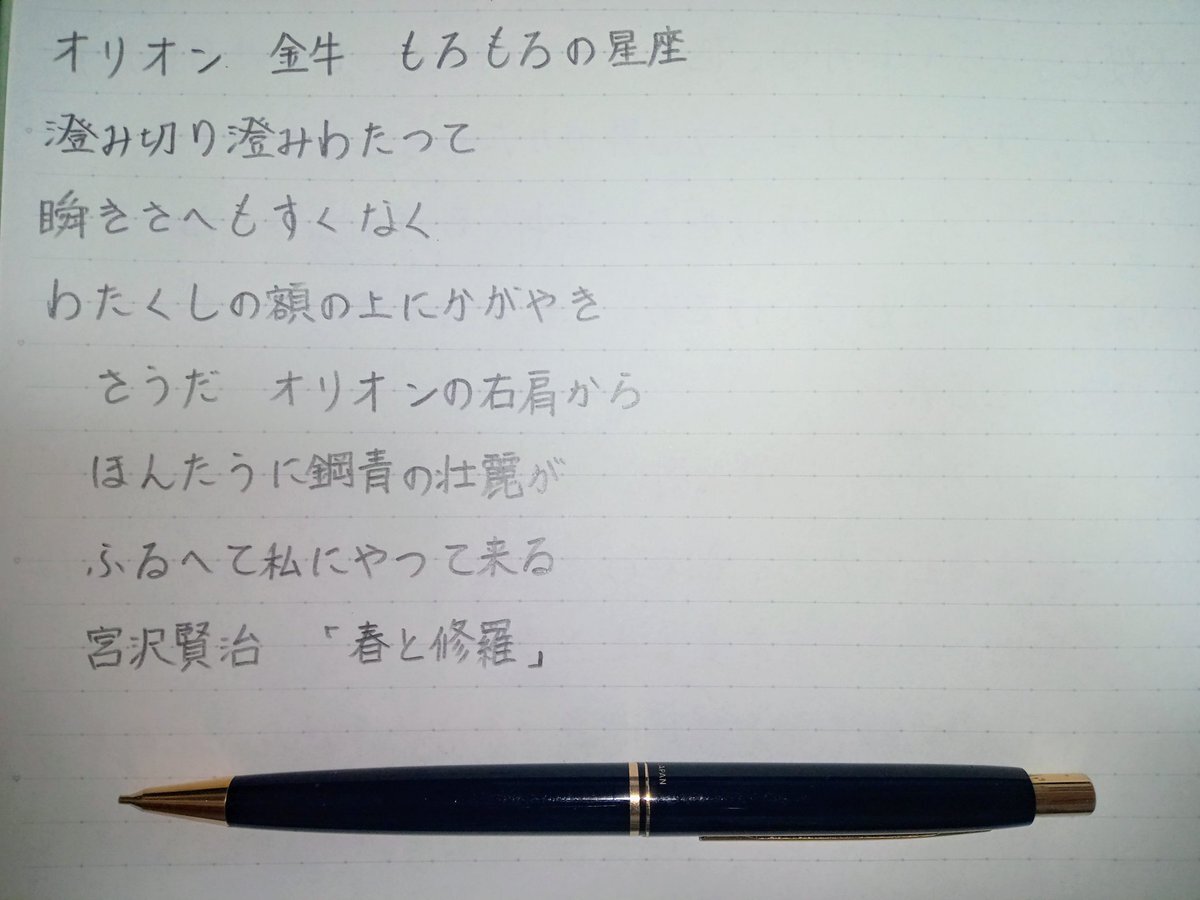 オリオン　金牛　もろもろの星座
澄み切り澄みわたって
瞬きさへもすくなく
わたくしの額の上にかがやき
さうだ　オリオンの右肩から
ほんたうに鋼青の壮麗が
ふるへて私にやって来る
宮沢賢治　「春と修羅」
APAN